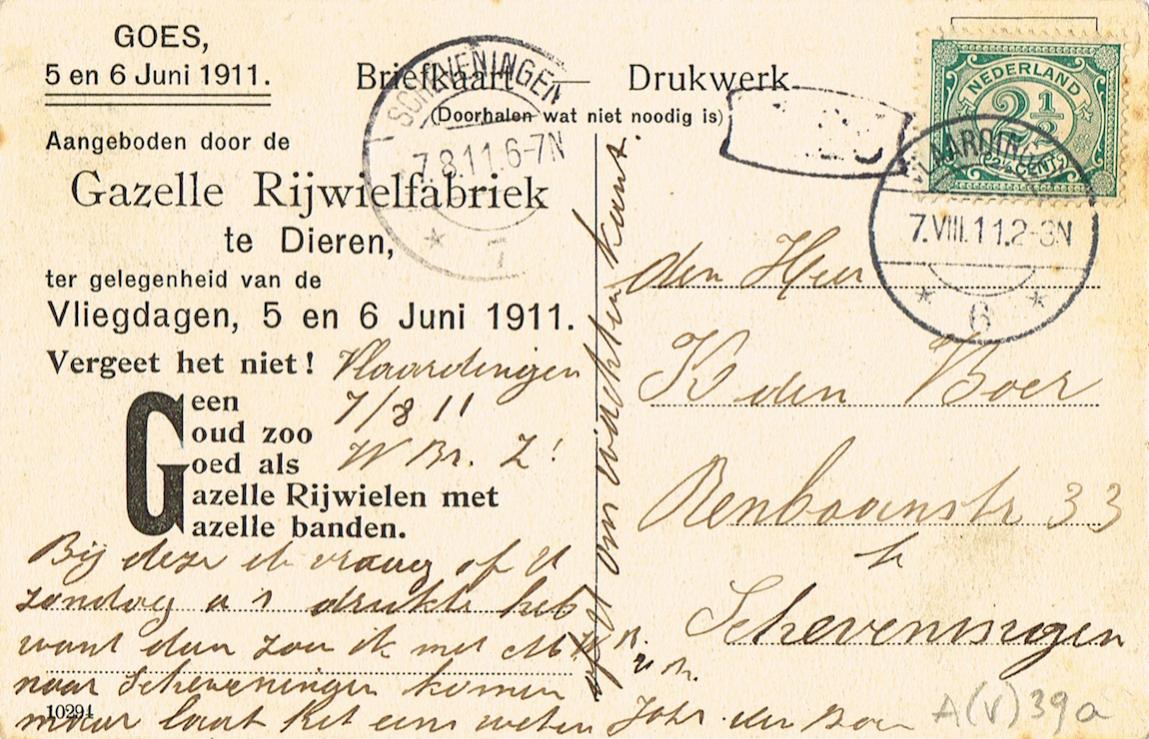 GOES,
5 en 6 Juni 1911.
Aangeboden door de
Gazelle Rijwielfabriek
te Dieren,
ter gelegenheid van de
Vliegdagen, 5 en 6 Juni 1911.
Vergeet het niet!
Geen
Goud zoo
Goed als
Gazelle Rijwielen met
Gazelle banden.
Vlaardingen
7/8 11
W Br. Z!
Bij deze ik vraag of U
zondag a s drukte heb
want dan zou ik met
naar Scheveningen komen
maar laat het eens weten
Joh. den Boer
10294
Briefkaart — Drukwerk
(Doorhalen wat niet noodig is)
SCHEVENINGEN
7.8.11.6-7N
7
NEDERLAND
2½
(2½ CENT)
VLAARDINGEN
7.VIII.11.2-3N
6
om achterkant.
den Heer
K den Boer
Renbaanstr 33
te
Scheveningen
A(V)39a